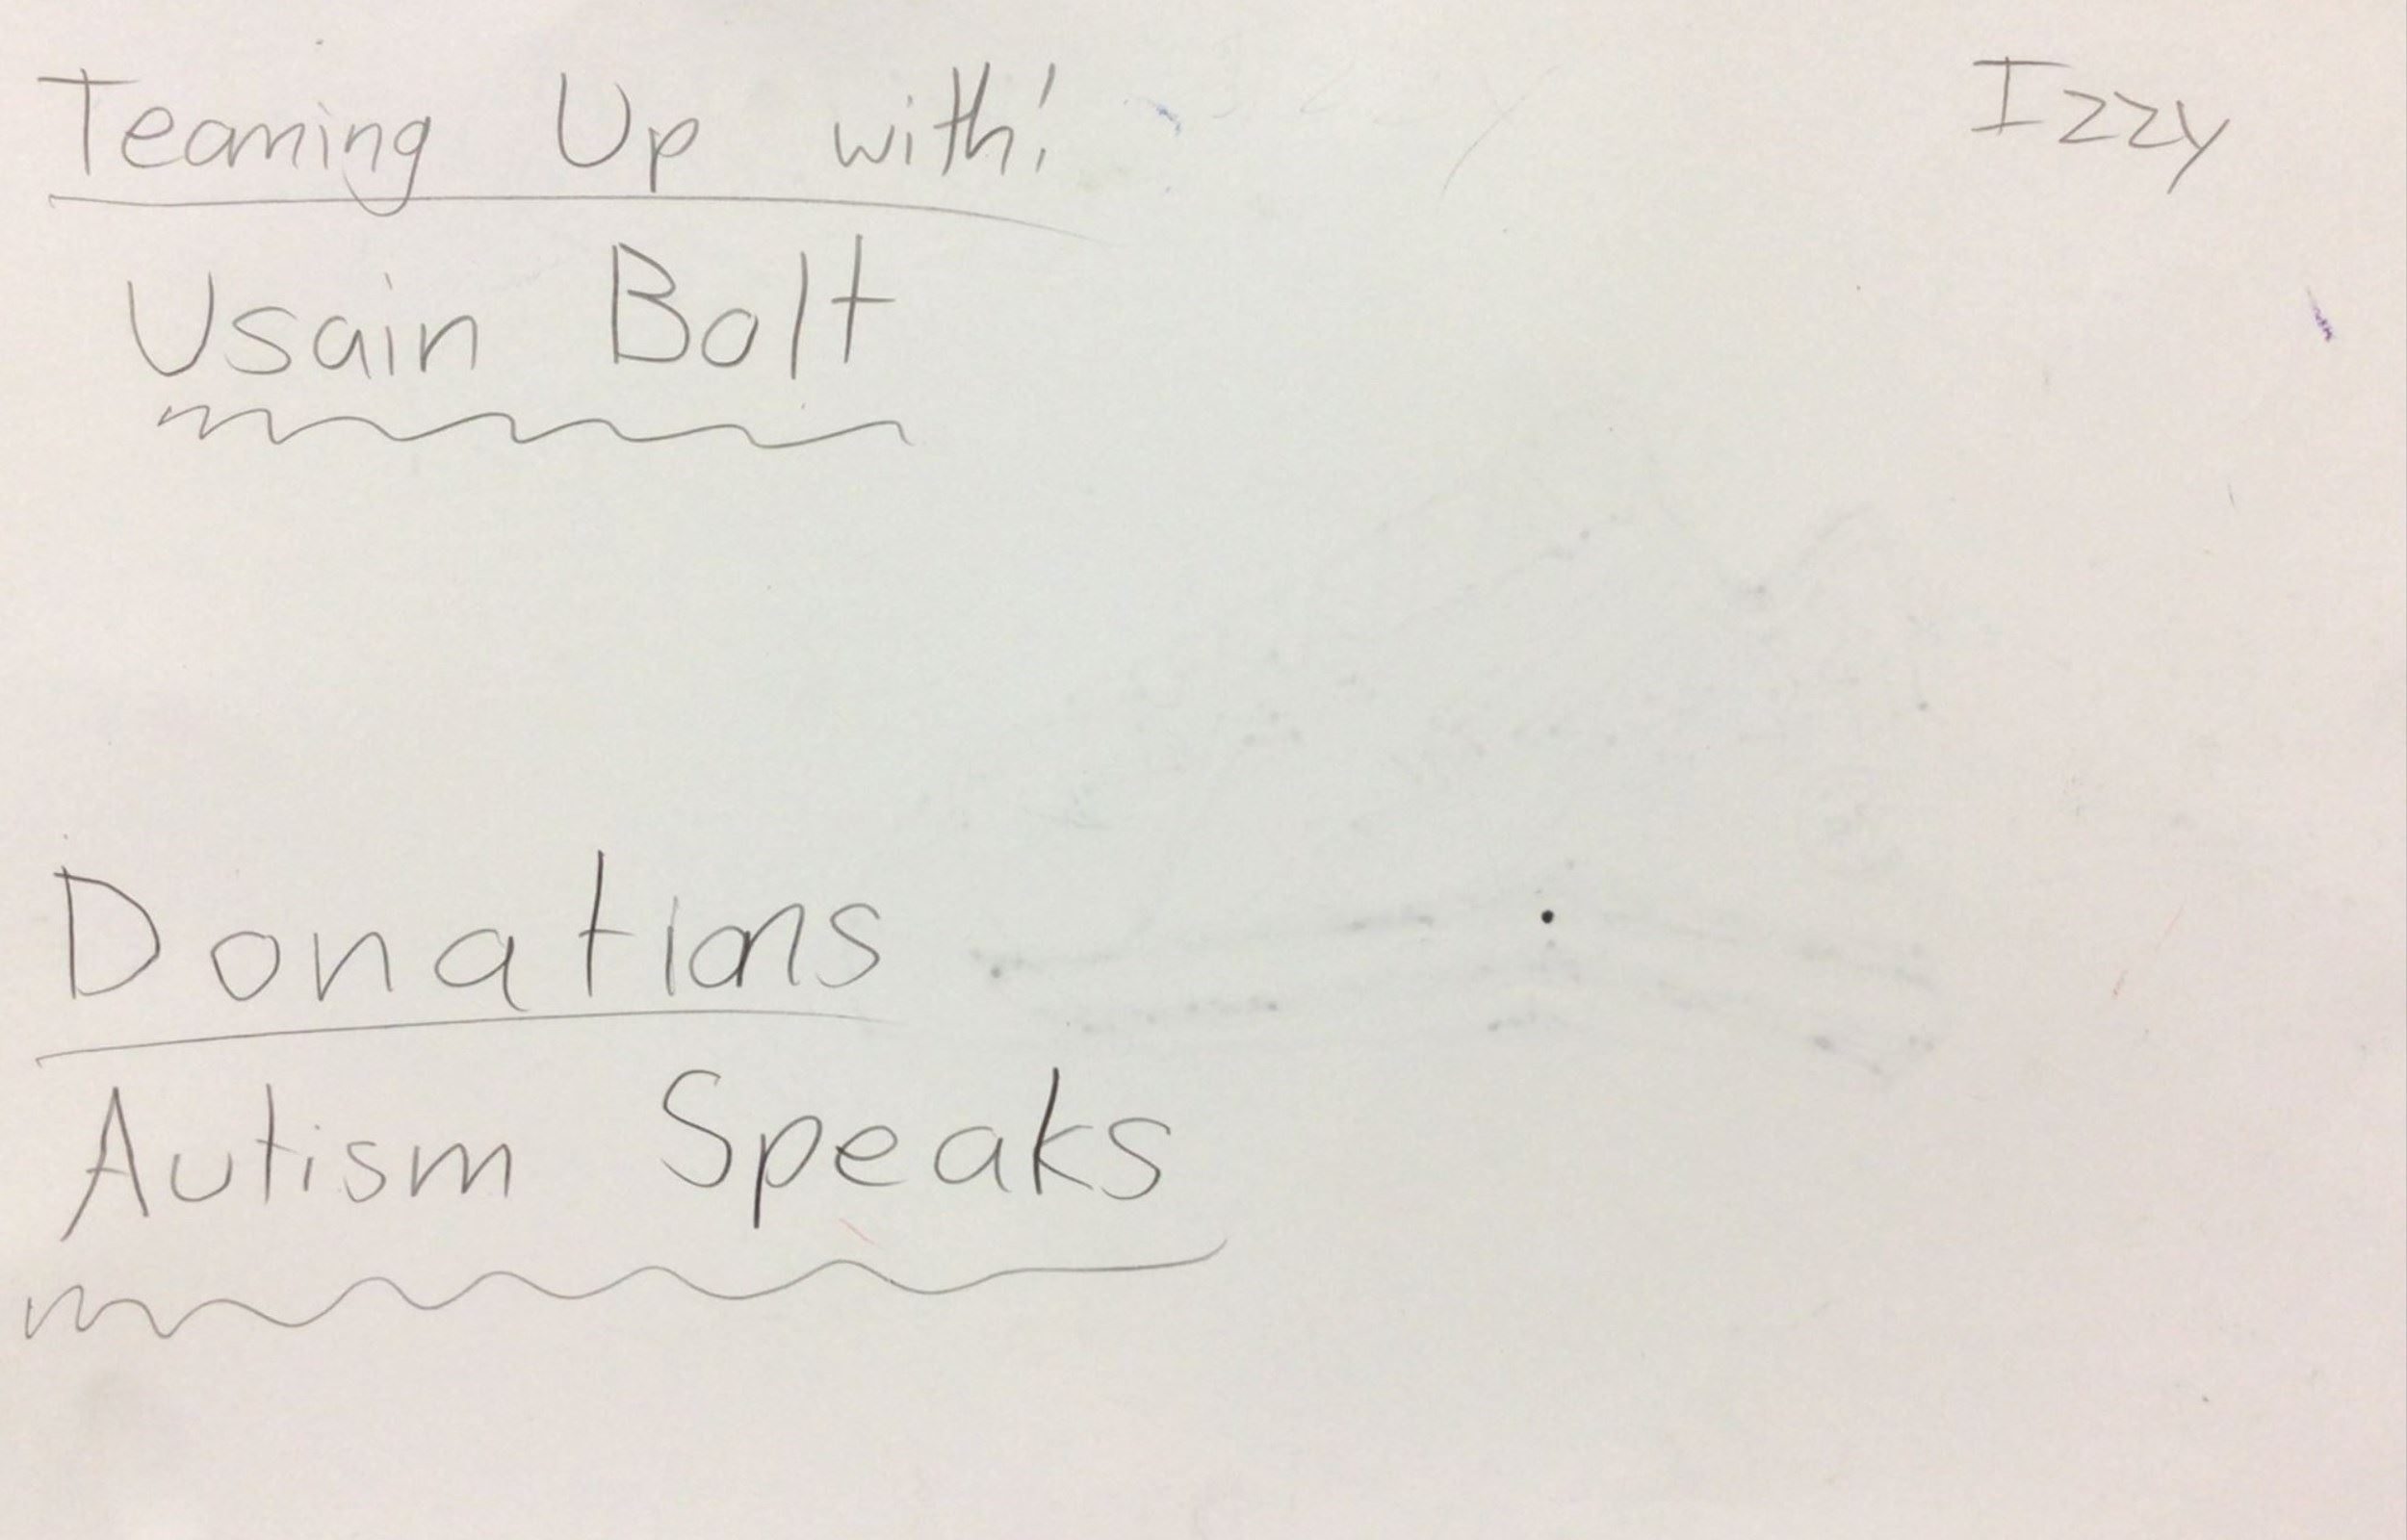 Teaming Up with!
Izzy
Usain Bolt
Donations
Autism Speaks